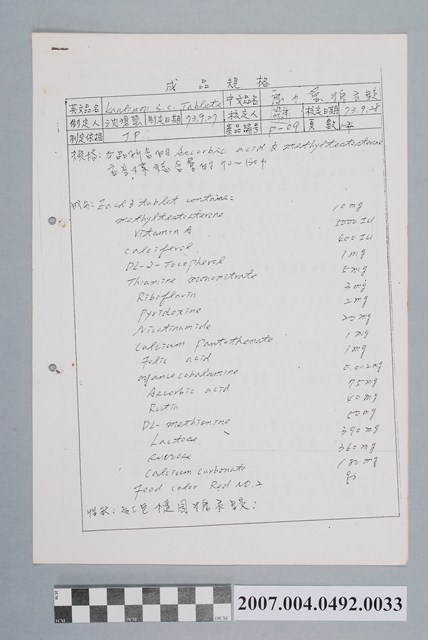 成品規格
英文品名 S.C. Tablets 中文品名 糖衣錠
制定人 制定日期 73.9.27 核定人 核定日期 73.9.28
制定依據 JP 產品編號 P-09 頁數
規格: 本品所含的 Ascorbic acid & methyltestosterone
90~120%
成分: Each 3 tablet contains:
methyltestosterone 10 mg
Vitamin A 2000 IU
Calciferol 400 IU
DL-2-Tocopherol 1 mg
Thiamine mononitrate 5 mg
Riboflavin 2 mg
Pyridoxine 2 mg
Nicotinamide 20 mg
Calcium Pantothenate 1 mg
Folic acid 1 mg
cyanocobalamine 0.002 mg
Ascorbic acid 75 mg
Rutin 40 mg
DL-methionine 50 mg
Lactose 390 mg
Sucrose 360 mg
Calcium carbonate 180 mg
Food color Red NO.2 qs
性狀: 紅色橢圓糖衣錠:
2007.004.0492.0033